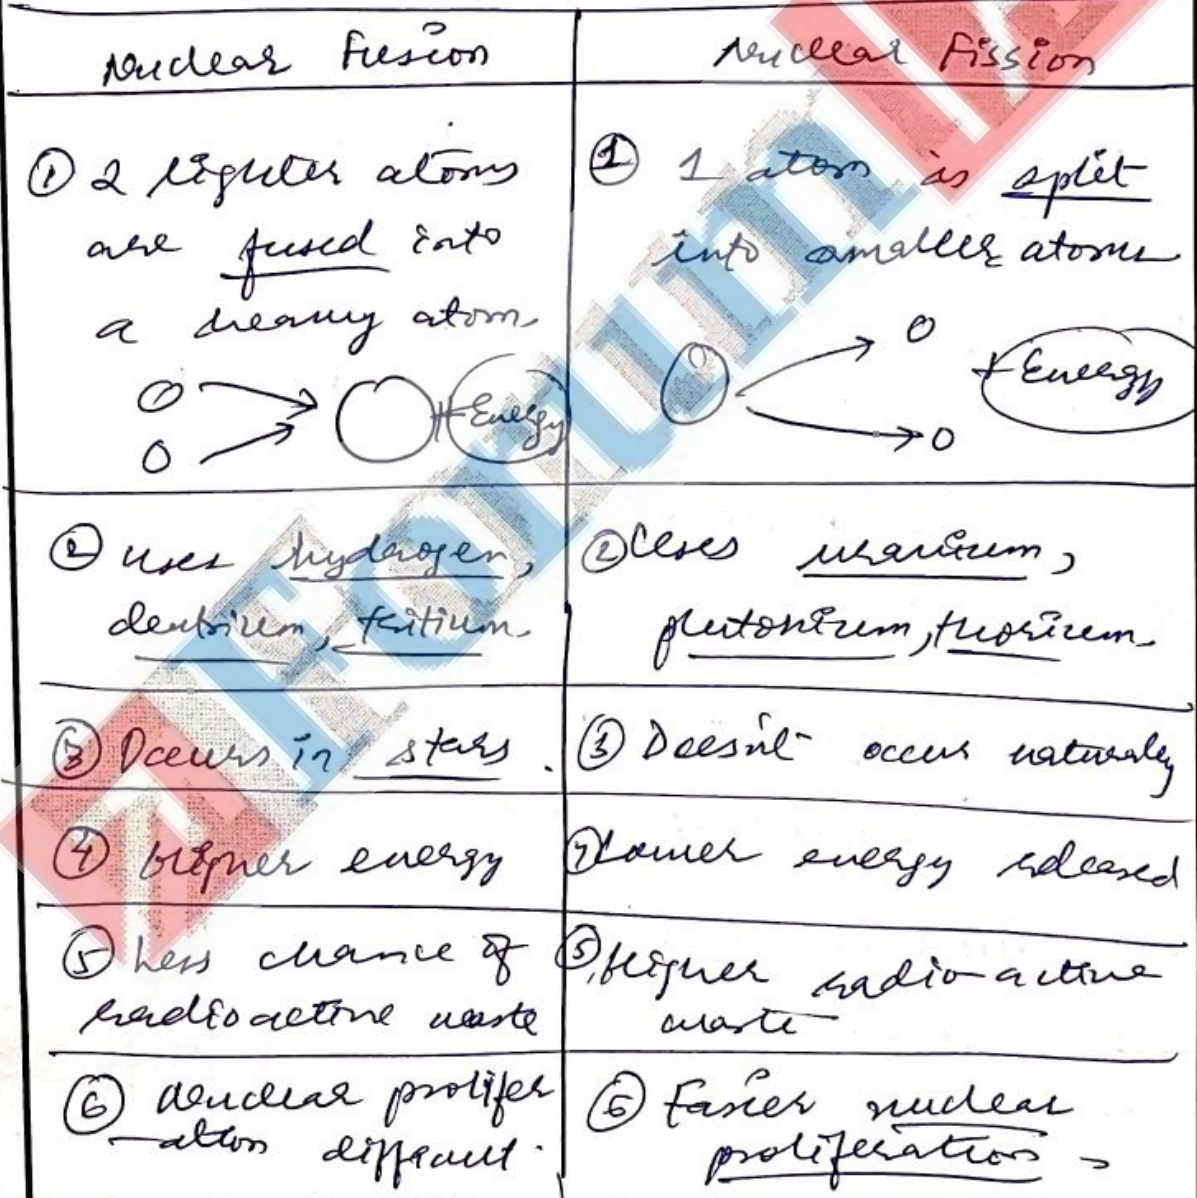 Nuclear Fusion
Nuclear Fission
① 2 lighter atoms
are fused into
a heavy atom.
+ Energy
① 1 atom is split
into smaller atoms
+ Energy
② Uses hydrogen,
deutrium, tritium.
② Uses uranium,
plutonium, thorium.
③ Occurs in stars.
③ Doesn't occur naturally
④ Higher energy
④ Lower energy released
⑤ Less chance of
radioactive waste
⑤ Higher radio-active
waste
⑥ Nuclear prolifer
-ation difficult.
⑥ Easier nuclear
proliferation
ForumIA